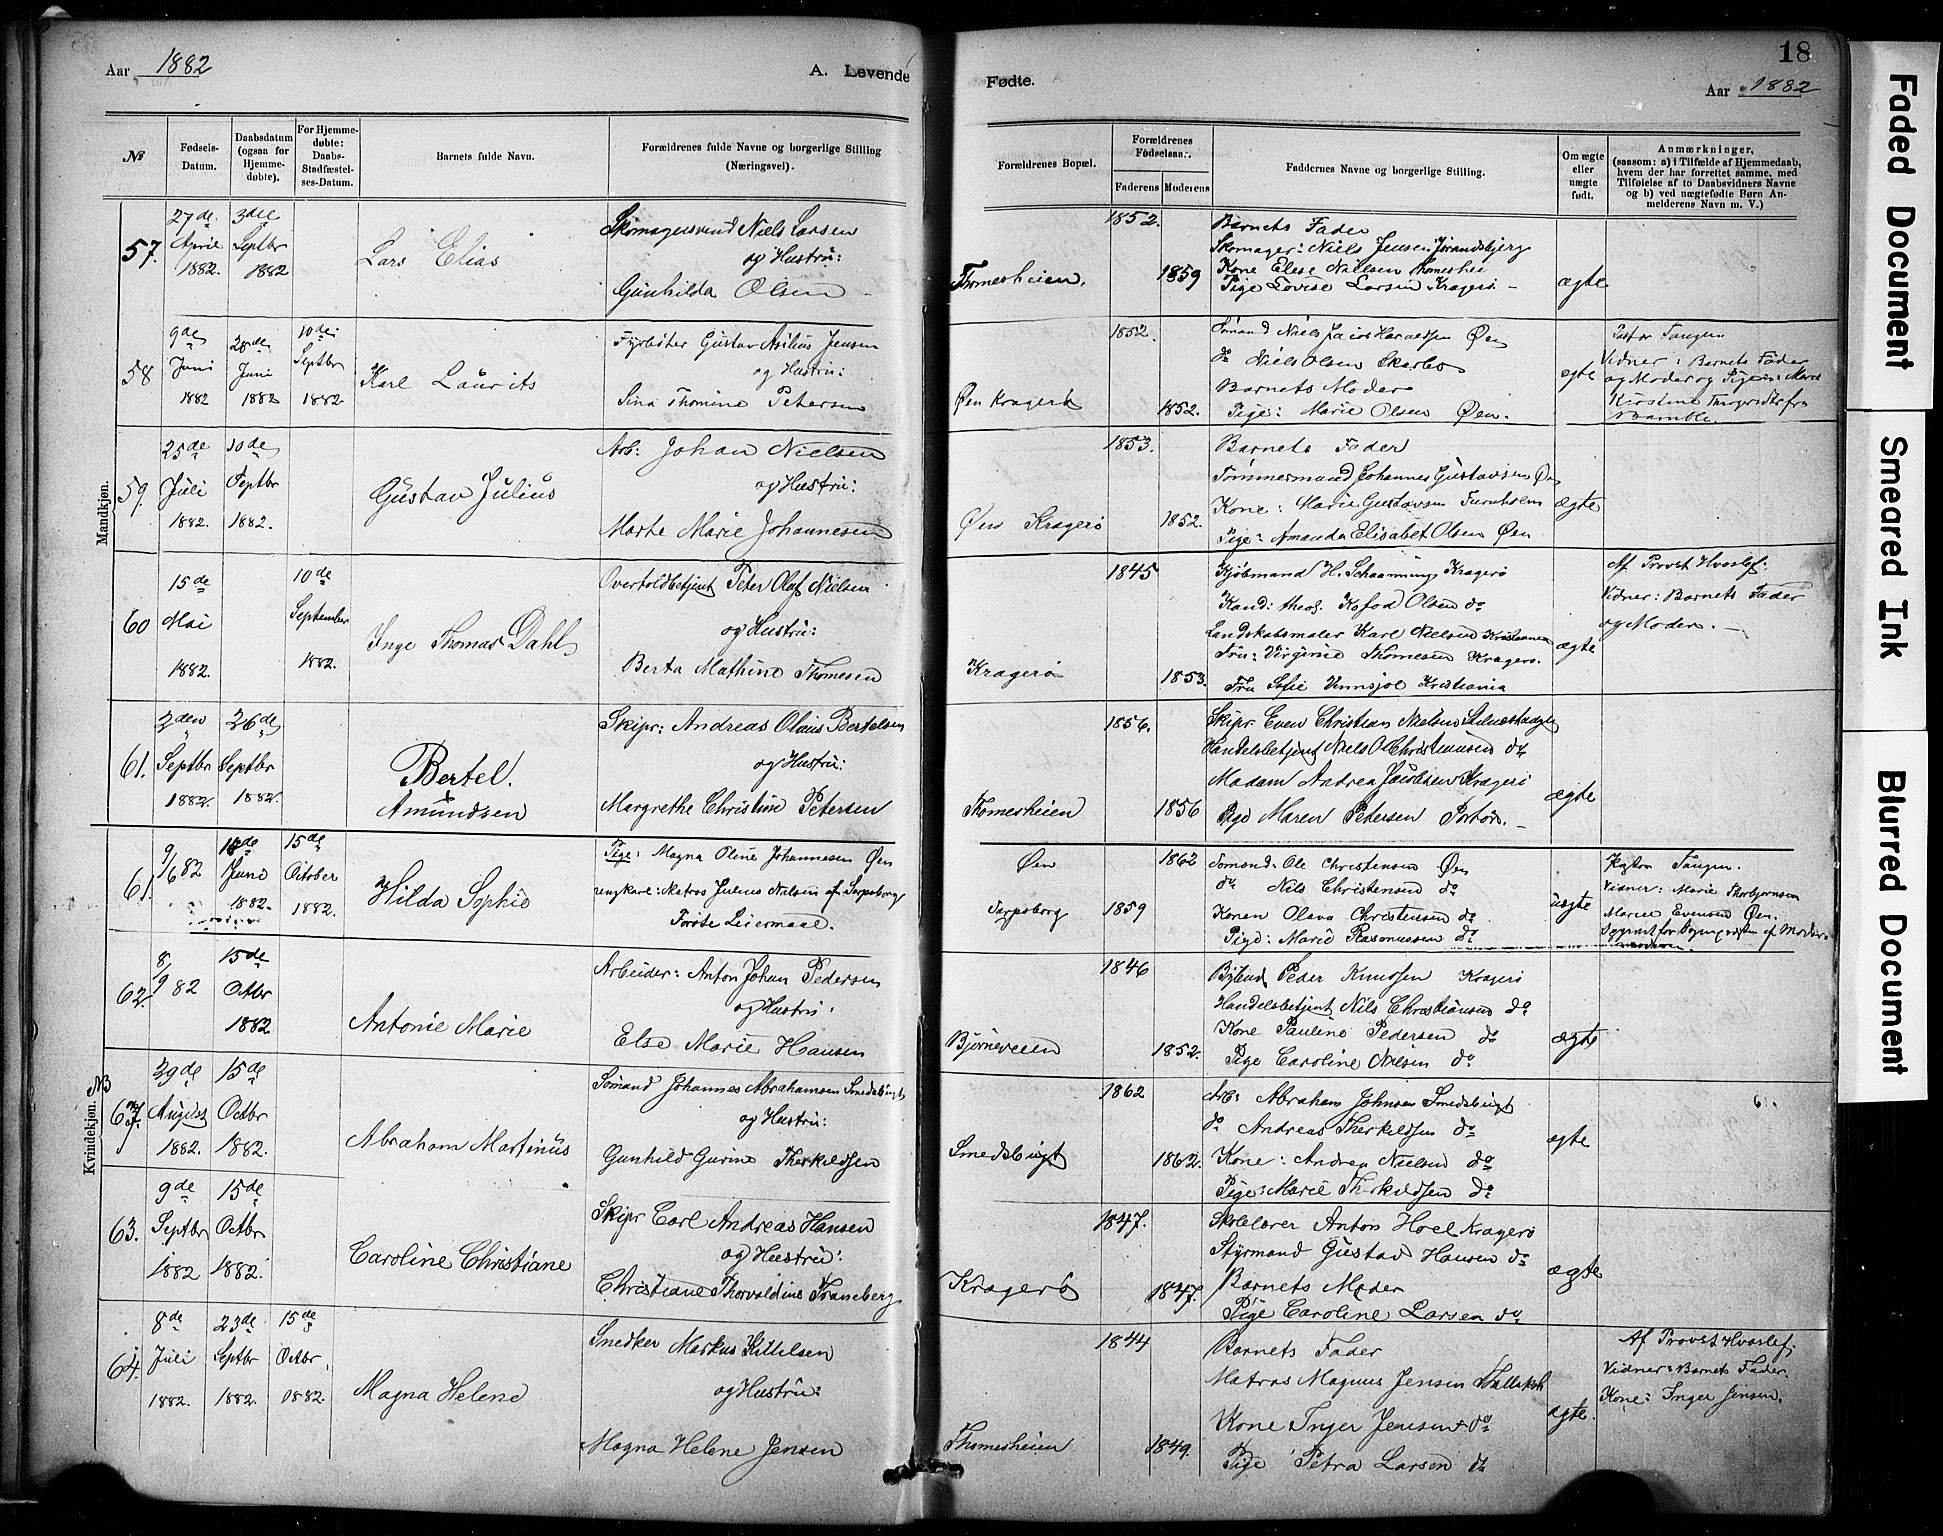 Aar 1882
A. Levende
Fødte.
18
Aar 1882
№
Fødsels-Datum.
Daabsdatum (ogsaa for Hjemme-døbte).
For Hjemme-døbte: Daabs-Stadfæstel-ses-Datum.
Barnets fulde Navn.
Forældrenes fulde Navne og borgerlige Stilling (Næringsvei).
Forældrenes Bopæl.
Forældrenes Fødselsaar.
Faderens
Moderens
Faddernes Navne og borgerlige Stilling.
Om ægte eller uægte født.
Anmærkninger,
(saasom: a) i Tilfælde af Hjemmedaab, hvem der har forrettet samme, med Tilføielse af to Daabsvidners Navne og b) ved uægtefødte Børn An-melderens Navn m. V.)
Mandkjøn.
57.
27de April 1882.
3die Septbr 1882
Lars Elias
Skomagersvend Niels Larsen
og Hustru:
Gunhilda Olsen
Thomesheien.
1852.
1859
Barnets Fader
Skomager: Niels Jensen
Kone Elese Nielsen Thomeshei
Pige Lovise Larsen Kragerø
ægte
58
9de Juni 1882
28de Juni 1882
10de Septbr 1882.
Karl Laurits
Fyrbøter Gustav Jensen
og Hustru:
Sina Thomine Petersen
Øen Kragerø
1852.
1852.
Sømand Niels Haraldsen Øen
do Niels Olsen Skarbo
Barnets Moder
Pige: Marie Olsen Øen.
ægte
Pastor Tangen
Vidner: Barnets Fader
og Moder og Pigen: Marie
Kirstine fra
Bamble.
59.
25de Juli 1882.
10de Septbr 1882.
Gustav Julius
Arb: Johan Nielsen
og Hustru:
Marte Marie Johannesen
Øen Kragerø
1853.
1852.
Barnets Fader
Tømmermand Johannes Gustavsen Øen
Kone: Marie Gustavsen Furuholm
Pige: Amanda Elisabet Olsen Øen
ægte
60
15de Mai 1882.
10de September 1882.
Inge Thomas Dahl
Overtoldbetjent Peter Olaf Nielsen
og Hustru:
Berta Mathine Thomesen
Kragerø
1845
1853.
Kjøbmand H. Schaanning Kragerø
Kand: theol. Kofod Olsen do
Landskabsmaler Karl Nielsen Kristiania
Fru: Virginie Thomesen Kragerø.
Fru Sofie Kristiania
ægte
Af Provst Hvoslef.
Vidner: Barnets Fader
og Moder.
61.
2den Septbr 1882.
26de Septbr 1882.
Bertel.
Amundsen
Skipr: Andreas Olaus Bertelsen
og Hustru:
Margrethe Christine Petersen
Thomesheien
1856.
1856
Skipr Even Christian Nielsen
Handelsbetjent Niels O Christiansen do
Madam Andrea Jacobsen Kragerø
Pige Maren Pedersen
ægte
Kvindekjøn.
61.
9/6 82
18de Juni 1882.
15de October 1882.
Hilda Sophie
Pige: Magna Oline Johannesen Øen
Ungkarl: Matros Julius Nielsen af Sarpsborg
Første Leiermaal.
Øen
Sarpsborg
1862
1859
Sømand: Ole Christensen Øen
do Nils Christensen do
Konen Olava Christensen do
Pige: Marie Rasmussen do
uægte
Pastor Tangen.
Vidner: Marie Thorbjørnsen
Maren Evensen Øen.
62.
8/9 82
15de Octbr 1882.
Antonie Marie
Arbeider: Anton Johan Pedersen
og Hustru:
Else Marie Hansen
Bjørneveien
1846
1852.
Bybud Peder Knudsen Kragerø
Handelsbetjent Nils Christiansen do
Kone Pauline Pedersen do
Pige Caroline Nielsen do
ægte
NB
67.
29de August 1882.
15de Octbr 1882.
Abraham Martinus
Sømand Johannes Abrahamsen Smedsbugt
og Hustru:
Gunhild Gurine Therkeldsen
Smedsbugt
1862
1862.
Arb: Abraham Johnsen Smedsbugt
do Andreas Therkeldsen do
Kone: Andrea Nielsen do
Pige: Marie Therkeldsen do
ægte
63.
9de Septbr 1882
15de Octbr 1882.
Caroline Christiane
Skipr Carl Andreas Hansen
og Hustru:
Christiane Thorvaldine Franeberg
Kragerø
1847.
1847.
Skolelærer Anton Hoel Kragerø
Styrmand Gustav Hansen do
Barnets Moder
Pige Caroline Larsen do
ægte
64.
8de Juli 1882.
23de Septbr 1882.
15de Octbr. 1882.
Magna Helene
Snedker Markus Kittelsen
og Hustru:
Magna Helene Jensen
Thomesheien
1844
1849.
Barnets Fader
Matros Magnus Jensen
Kone Inger Jensen do
Pige Petra Larsen do
ægte.
Af Provst Hvoslef.
Vidner: Barnets Fader.
Kone: Inger Jensen.
Faded Document
Smeared Ink
Blurred Document